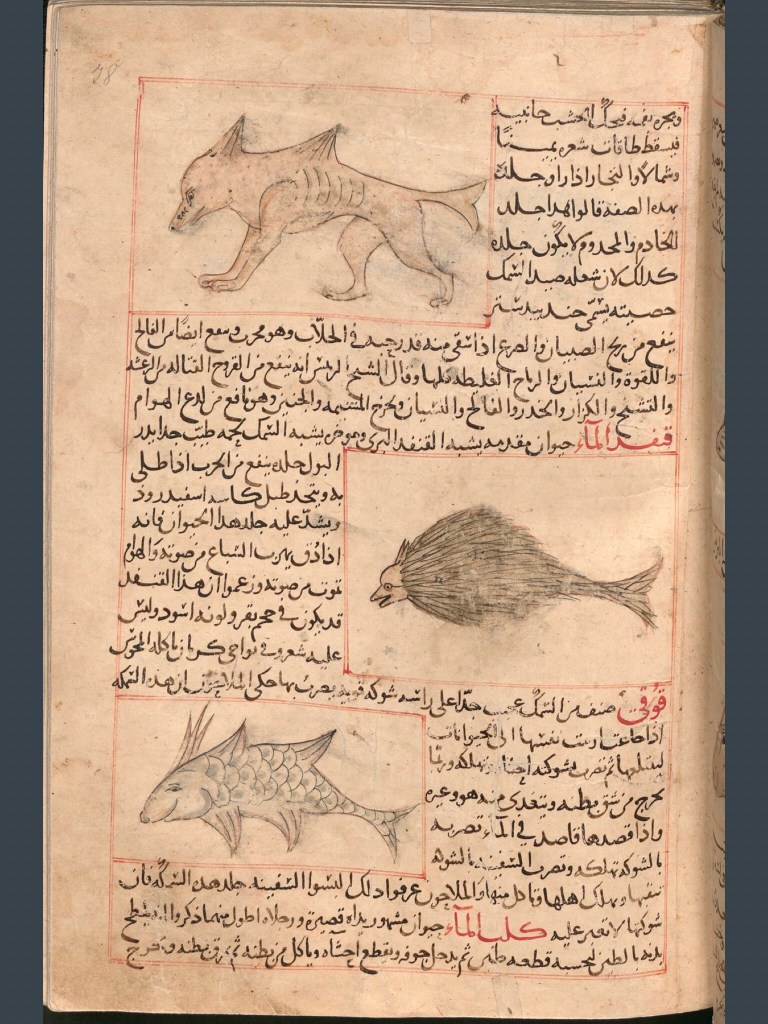 ويجره بفيه فيحك الخشب جانبيه
فيسقط طاقات شعره يمينًا
وشمالا والتجار اذا راوا جلده
بهذه الصفة قالوا هذا جلد
الخادم والمخدوم لا يكون جلده
كذلك لان شغله صيد السمك
خصيته يسمى جندبيدستر
ينفع من ريح الصبيان والصرع اذا سقى منه قدر حبة في الجلاب وهو مجرب وينفع ايضا من الفالج
واللقوة والنسيان والرياح الغليظة كلها وقال الشيخ الرئيس انه ينفع من القروح القتالة ومن الرعشة
والتشنج والكزاز والخدر والفالج والنسيان ويخرج المشيمة والجنين وهو نافع من لدغ الهوام
قنفذ الماء حيوان مقدمه يشبه القنفذ البري وموخره يشبه السمك لحمه طيب جدا يدر
البول جلده ينفع من الجرب اذا طلى
به ويتخذ طبل كاسه اسفيدروذ
ويشد عليه جلد هذا الحيوان فانه
اذا دق يهرب السباع من صوته والهوام
تموت من صوته وزعموا ان هذا القنفذ
قد يكون في حجم بقر ولونه اسود وليس
عليه شعر وفي نواحى كرمان ياكله المجوس
قوقى صنف من السمك عجيب جدا على راسه شوكة قوية يضرب بها حكى الملاحون ان هذه السمكة
اذا جاعت ارمت نفسها الى الحيوانات
ليبتلعها ثم تضرب بشوكته احشاه تهلكه وربما
تخرج من شق بطنه ويتغذى منه هو وغيره
واذا قصدها قاصد في الماء تضربه
بالشوكة تهلكه وتضرب السفينة بالشوكة
تنقبها وتهلك اهلها وتاكل منها والملاحون عرفوا ذلك البسوا السفينة جلد هذه السمكة فان
شوكها لا تعبر عليه كلب الماء حيوان مشهور يداه قصيرة ورجلاه اطول منهما ذكروا انه يلطخ
بدنه بالطين ليحسبه قطعة طين ثم يدخل جوفه ويقطع احشاه وياكل من بطنه ثم يمزق بطنه ويخرج